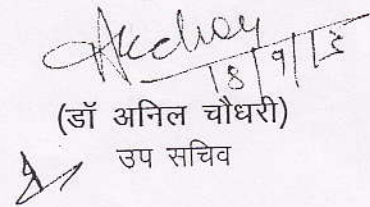 18/9/15
(डॉ अनिल चौधरी)
उप सचिव